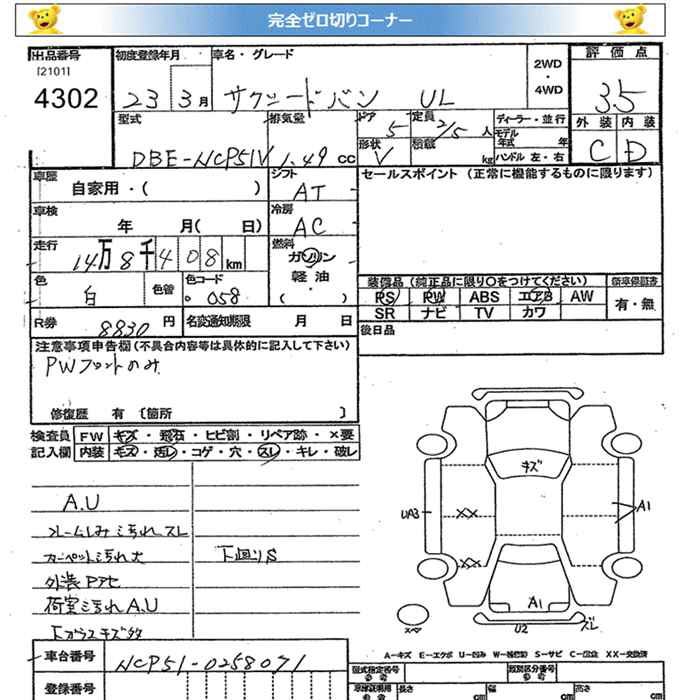 完全ゼロ切りコーナー
出品番号 初度登録年月 車名・グレード 2WD・4WD 評価点
[2101]
4302 23 3月 サクシードバン UL 3.5
型式 排気量 ドア 定員 ディーラー・並行 外装 内装
DBE-NCP51V 1.49 CC 5 2/5人 モデル年式 年 C D
形状 V 積載 kg ハンドル 左・右
車歴 自家用・( ) シフト AT セールスポイント (正常に機能するものに限ります)
車検 年 月( 日) 冷房 AC
走行 14万8千408km 燃料 ガソリン
軽油・( )
色 白 色替 色コード 058
装備品 (純正品に限り○をつけてください) 新車保証書
PS PW ABS エアB AW 有・無
SR ナビ TV カワ
R券 8830円 名変通知期限 月 日 後日品
注意事項申告欄 (不具合内容等は具体的に記入して下さい)
PWフロントのみ
修復歴 有 [箇所 ]
検査員 FW キズ・飛石・ヒビ割・リペア跡・×要
記入欄 内装 キズ・汚レ・コゲ・穴・スレ・キレ・破レ
A.U
汚れ スレ
カーペット汚れ大 下回りS
外装
荷室汚れ A.U
キズ
キズ
UA3 XX A1
XX
A1
スペア U2 ズレ
A-キズ E-エクボ U-凹み W-補修跡 S-サビ C-腐食 XX-交換済
車台番号 NCP51-0258071
型式指定番号 類別区分番号
登録番号 長さ cm 幅 cm 高さ cm